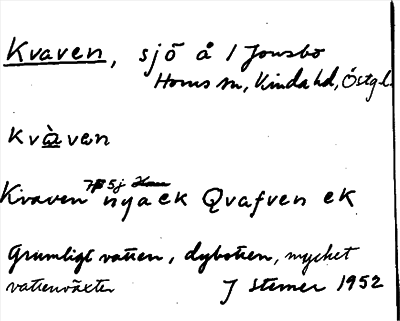 Kvaven, sjö å 1 Jonsbo
Horns sn, Kinda hd, Östgl.
Kvàven
Kvaven nya ek Qvafven ek
Grumligt vatten, dybotten, mycket
vattenväxter J Sterner 1952